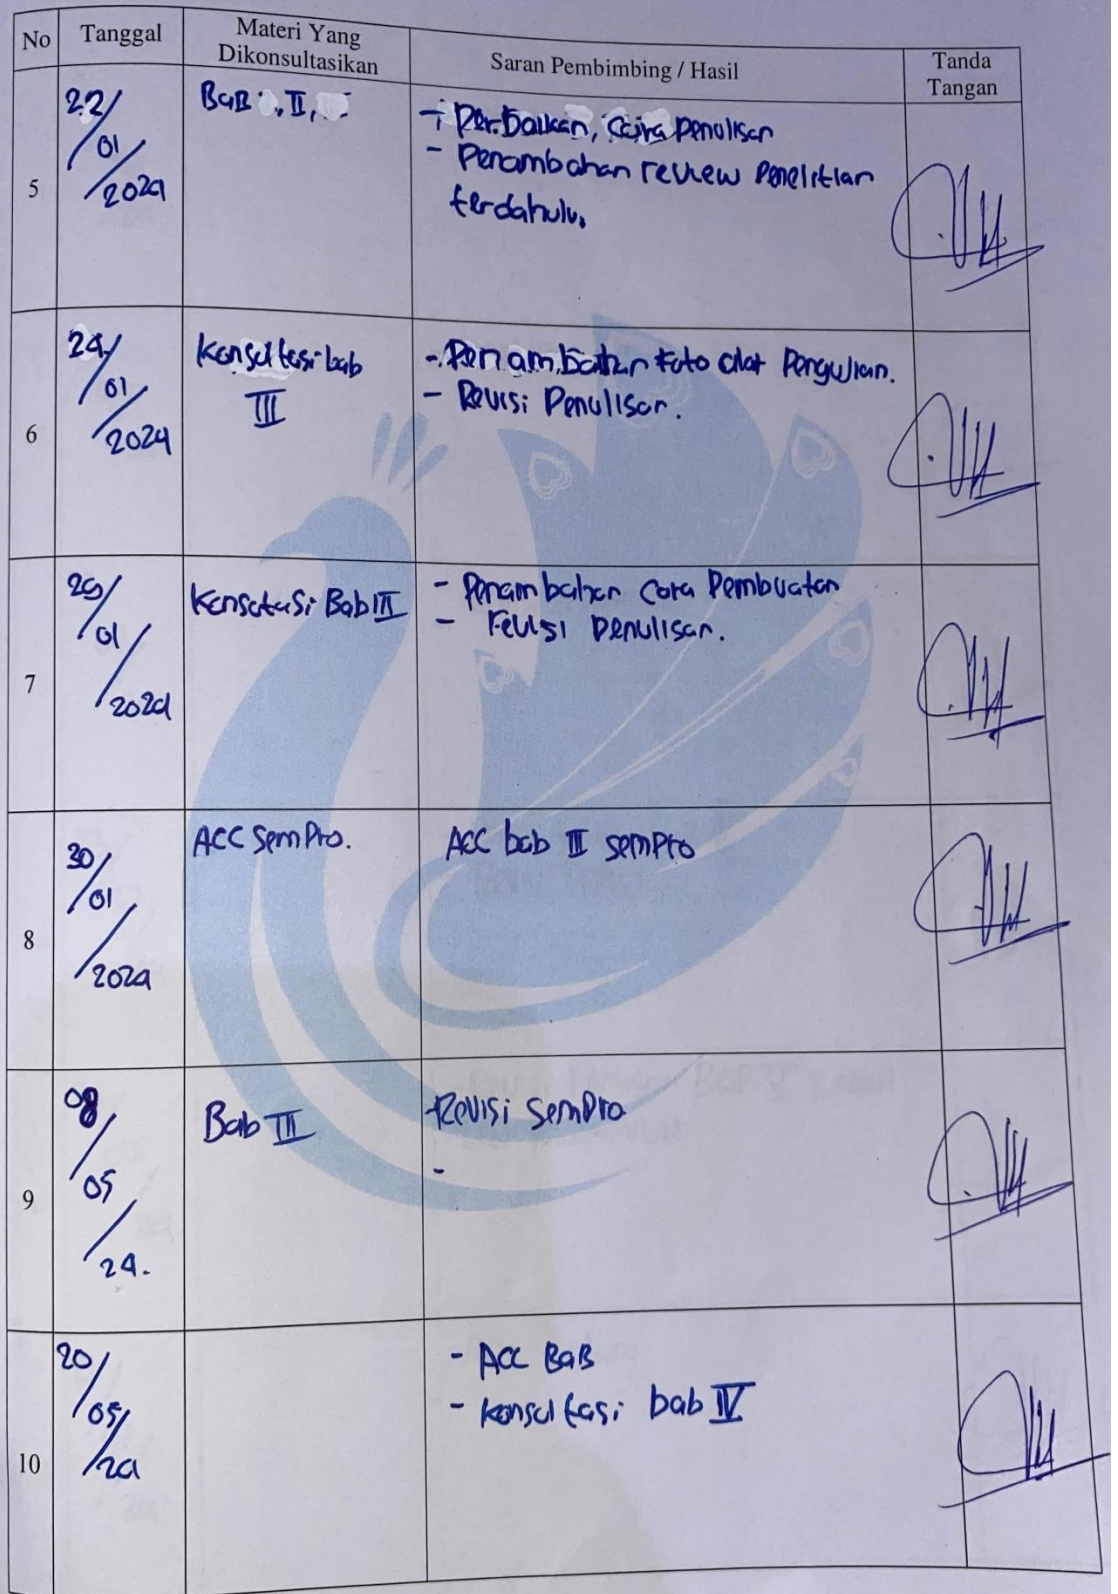 No Tanggal Materi Yang Dikonsultasikan Saran Pembimbing / Hasil Tanda Tangan
5
22/01/2024
BaB I, II,
- Perbaikan, Cara Penulisan
- Penambahan review Penelitian
terdahulu.
6
24/01/2024
Konsultasi bab
III
- Penambahan Foto alat Pengujian.
- Revisi Penulisan.
7
/01/2024
Konsultasi Bab III
- Penambahan Cara Pembuatan
- Revisi Penulisan.
8
30/01/2024
ACC SemPro.
ACC bab III semPro
9
08/05/24.
Bab III
Revisi SemPro
-
10
20/05/24
- ACC BaB
- Konsultasi bab IV